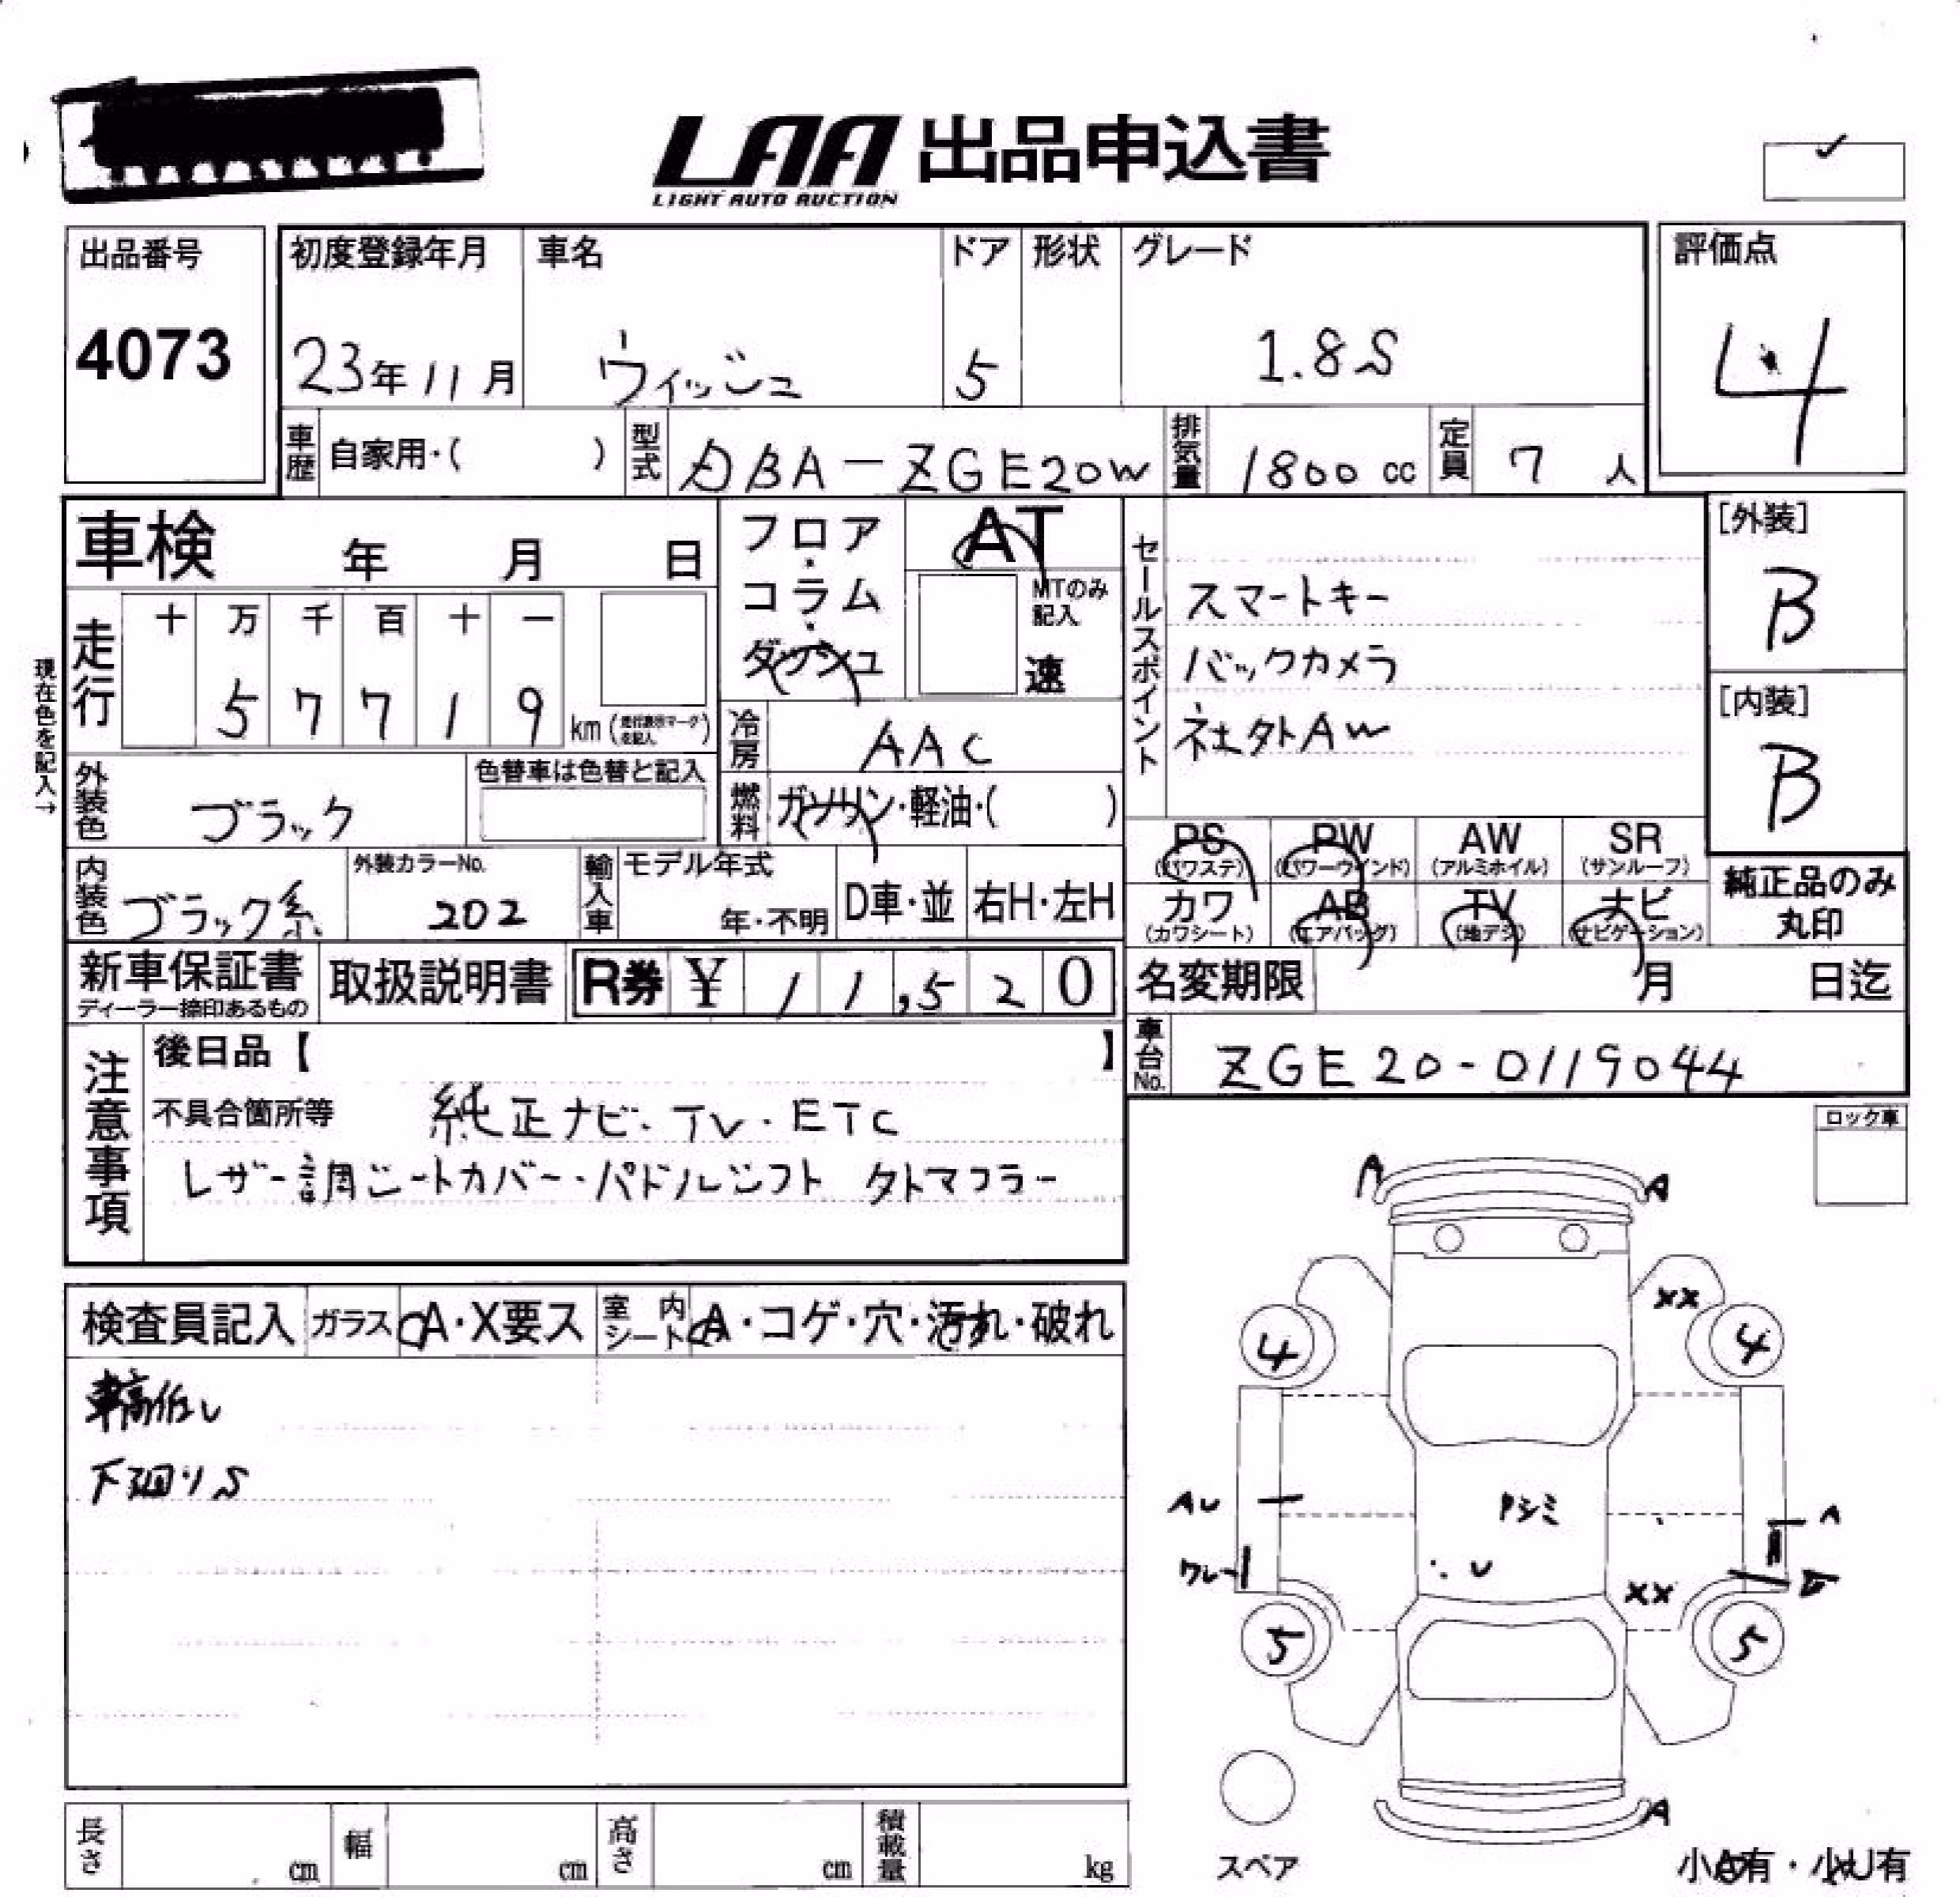 LAA 出品申込書
LIGHT AUTO AUCTION
出品番号
4073
初度登録年月
23年11月
車名
ウィッシュ
ドア
5
形状
グレード
1.8S
評価点
4
車歴 自家用・( )
型式 DBA-ZGE20W
排気量 1800 cc
定員 7 人
車検 年 月 日
フロア・コラム・ダッシュ
AT
MTのみ記入
速
セールスポイント
スマートキー
バックカメラ
社外AW
[外装]
B
[内装]
B
現在色を記入→
走行
十 万 千 百 十 一
5 7 7 1 9 km
冷房 AAC
外装色 ブラック
色替車は色替と記入
燃料 ガソリン・軽油・( )
内装色 ブラック系
外装カラーNo.
202
輸入車
モデル年式
年・不明
D車・並
右H・左H
PS (パワステ)
PW (パワーウインド)
AW (アルミホイル)
SR (サンルーフ)
カワ (カワシート)
AB (エアバッグ)
TV (地デジ)
ナビ (ナビゲーション)
純正品のみ
丸印
新車保証書
ディーラー捺印あるもの
取扱説明書
R券 ¥ 11,520
名変期限 月 日迄
車台No. ZGE20-0119044
注意事項
後日品【 】
不具合箇所等 純正ナビ・TV・ETC
レザー調シートカバー・パドルシフト タトマフラー
ロック車
検査員記入
ガラス A・X要ス
室内シート A・コゲ・穴・汚れ・破れ
車高低し
下廻りS
A
A
XX
4
4
AU
A
U
XX
5
5
A
スペア
小A有・小U有
長さ cm
幅 cm
高さ cm
積載量 kg